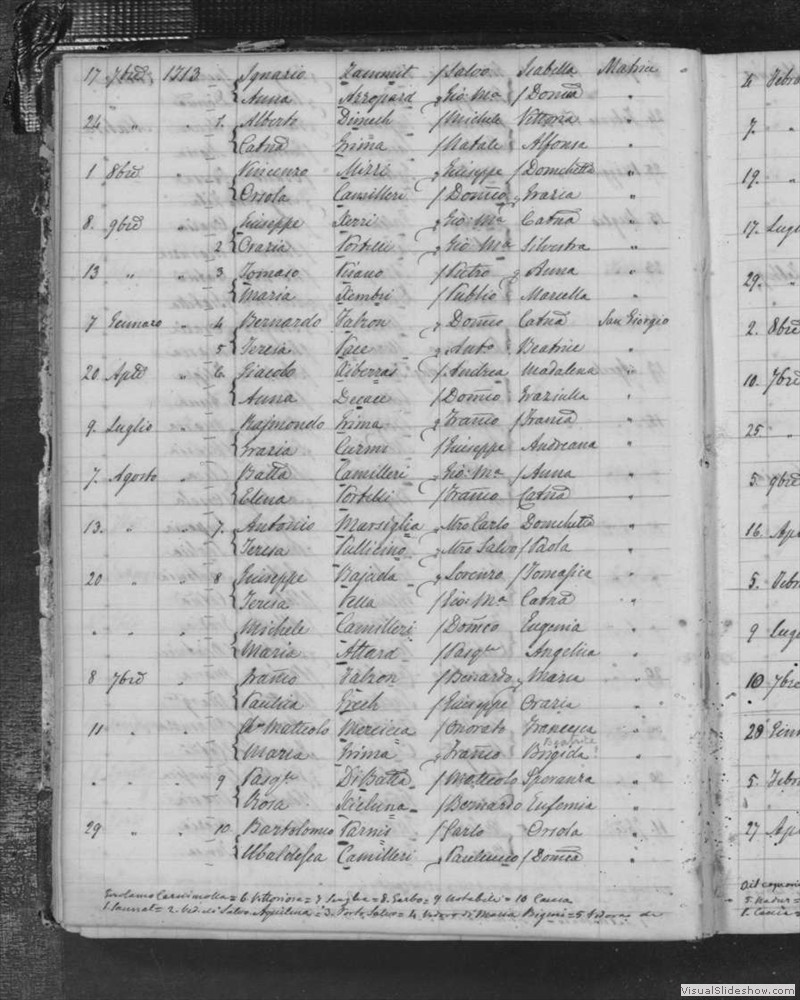 17 7bre 1713 Ignazio Zammit / Salvo Isabella Matrice
Anna Azzopard Gio Ma / Domca "
24 " " 1. Alberto Dimech / Michele Vittoria "
Catna Grima / Natale Alfonsa "
1 8bre Vincenzo Mizzi Giuseppe / Domchella "
Orsola Camilleri / Domco Grazia "
8. 9bre Giuseppe Xerri Gio: Ma Catna "
2 Grazia Portelli Gio: Ma Silvestra "
13 " " 3 Tomaso Pisano / Pietro Anna "
Maria Xembri / Publio Marcella "
7 Gennaro " 4 Bernardo Vabron Domco Catna San Giorgio
5 Teresa Pace Anto Beatrice "
20 Aple " 6 Giacolo Xiberras / Andrea Madalena "
Anna / Domco Graziulla "
9. Luglio " Rajmondo Grima Franco / Franca "
Grazia Curmi / Giuseppe Andreana "
7. Agosto " Batta Camilleri Gio: Ma / Anna "
Elena Portelli / Franco Catna "
13. " " 7. Antonio Marsiglia Mro Carlo Domchella "
Teresa Pullicino Mro Salvo / Paola "
20 " " 8 Giuseppe Bajada Lorenzo / Tomasica "
Teresa Vella / Gio: Ma Catna "
" " " Michele Camilleri / Domco Eugenia "
Maria Attard / Pasqle Angelica "
8 7bre " Franco Vabron / Benardo Maria "
Paulica Grech / Giuseppe Grazia "
11 " " Matteolo Mercieca / Onorato Francesca "
Maria Grima Franco Brigida "
" " " 9 Pasqle Di Batta / Matteolo Speranza "
Rosa Xicluna / Bernardo Eufemia "
29 " " 10 Bartolomeo Parnis / Carlo Orsola "
Ubaldesca Camilleri Paulucio / Domca "
6. Vittoriosa = 7 Senglea = 8. Garbo = 9 Notabile = 10 Caccia
1. Sannat = 2. Ved. di Salvo Aquilina = 3. Porto Salvo = 4. Vedovo di Maria = 5 Vedova de
4 Febra
7. "
19. "
17. Lugl
29. "
2. 8bre
10. 7bre
25. "
5 9bre
16. Ap
5. Febr
9 Lugl
10 7bre
28 Genn
5. Febr
27 Ap
5. Nadur =
VisualSlideshow.com